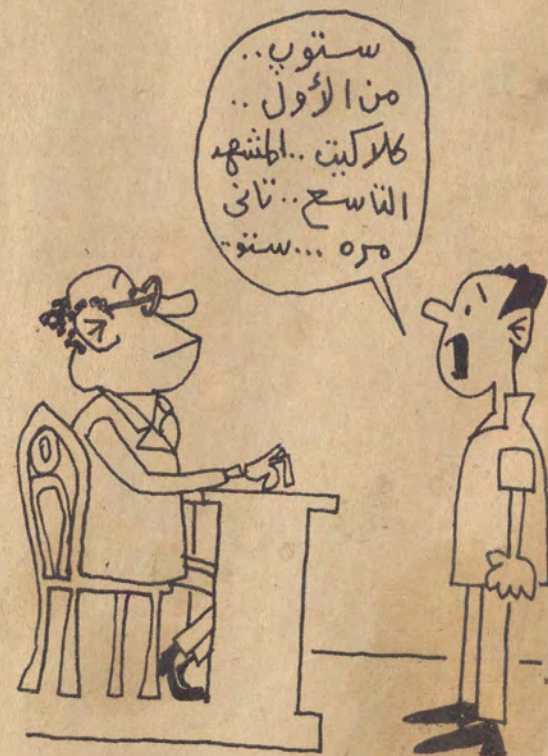 ستوب..
من الأول..
كلاكيت..المشهد
التاسع..تانى
مره...ستو..